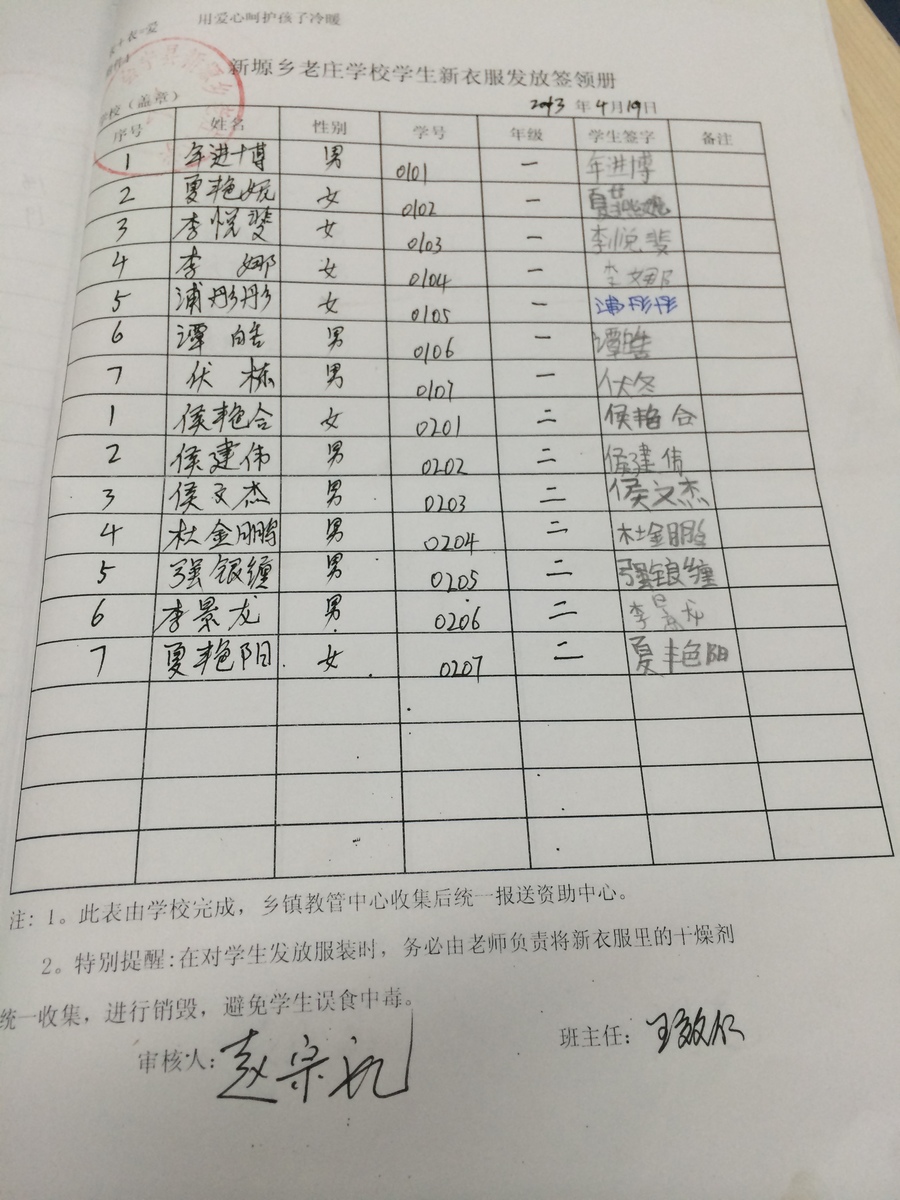 衣+衣=爱 用爱心呵护孩子冷暖
新塬乡老庄学校学生新衣服发放签领册
学校（盖章） 2013 年 4 月 19 日
序号 姓名 性别 学号 年级 学生签字 备注
1 年进博 男 0101 一 年进博
2 夏艳妮 女 0102 一 夏艳妮
3 李悦斐 女 0103 一 李悦斐
4 李娜 女 0104 一 李娜
5 浦彤彤 女 0105 一 浦彤彤
6 谭皓 男 0106 一 谭皓
7 伏栋 男 0107 一 伏冬
1 侯艳合 女 0201 二 侯艳合
2 侯建伟 男 0202 二 侯建伟
3 侯文杰 男 0203 二 侯文杰
4 杜金鹏 男 0204 二 杜金鹏
5 强银缠 男 0205 二 强银缠
6 李景龙 男 0206 二 李景龙
7 夏艳阳 女 0207 二 夏艳阳
注: 1。此表由学校完成，乡镇教管中心收集后统一报送资助中心。
2。特别提醒:在对学生发放服装时，务必由老师负责将新衣服里的干燥剂
统一收集，进行销毁，避免学生误食中毒。
审核人: 赵宗礼 班主任: 王效仁